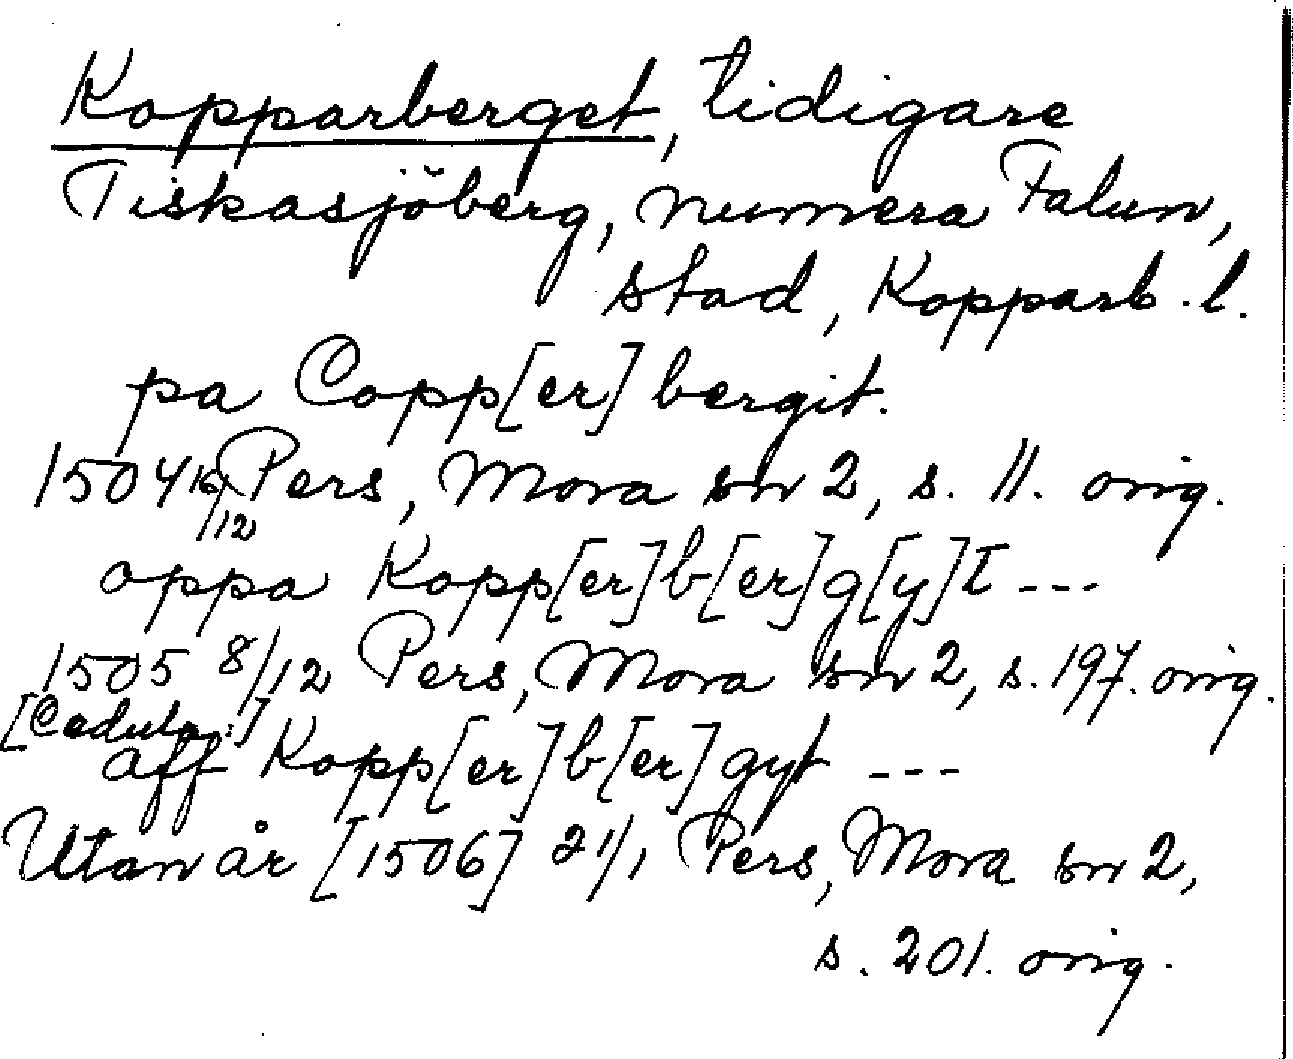 Kopparberget, tidigare
Tiskasjöberg, numera Falun,
stad, Kopparb. l.
pa Copp[er]bergit.
1504 16/12 Pers, Mora sn 2, s. 11. orig.
oppa Kopp[er]b[er]g[y]t ---
1505 8/12 Pers, Mora sn 2, s. 197. orig.
[Cedula:]
aff Kopp[er]b[er]gyt ---
Utan år [1506] 21/1 Pers, Mora sn 2,
s. 201. orig.